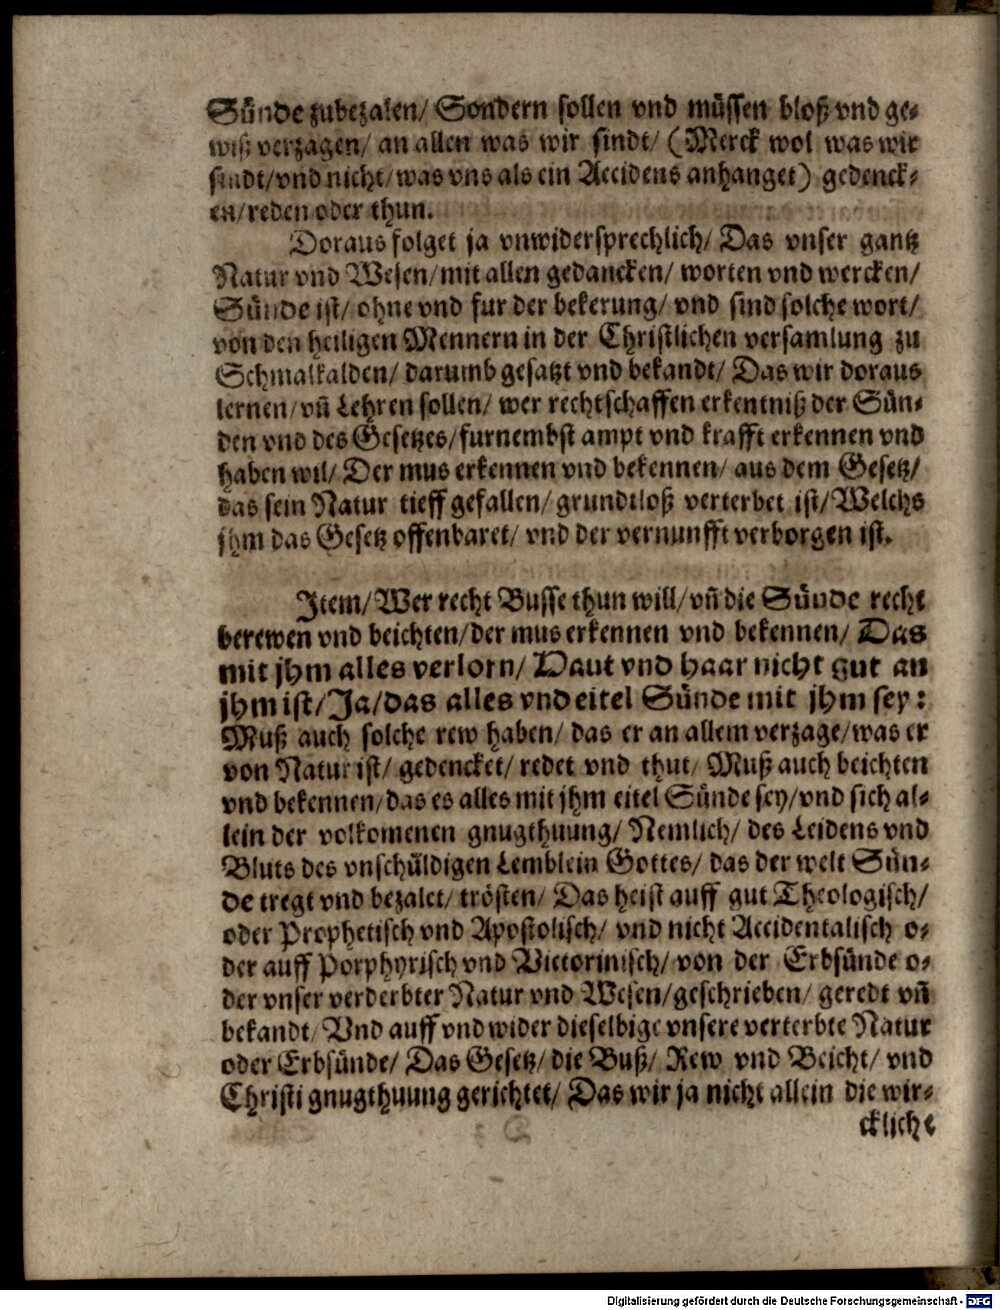 Sünde zubezalen/ Sondern sollen vnd müssen bloß vnd ge-
wiß verzagen/ an allen was wir sindt/ (Merck wol was wir
sindt/vnd nicht/was vns als ein Accidens anhanget) gedenck-
en/reden oder thun.
Doraus folget ja vnwidersprechlich/ Das vnser gantz
Natur vnd Wesen/mit allen gedancken/ worten vnd wercken/
Sünde ist/ ohne vnd fur der bekerung/ vnd sind solche wort/
von den heiligen Mennern in der Christlichen versamlung zu
Schmalkalden/ darumb gesatzt vnd bekandt/ Das wir doraus
lernen/vñ Lehren sollen/ wer rechtschaffen erkentniß der Sün-
den vnd des Gesetzes/furnembst ampt vnd krafft erkennen vnd
haben wil/ Der mus erkennen vnd bekennen/ aus dem Gesetz/
das sein Natur tieff gefallen/ grundtloß verterbet ist/Welchs
jhm das Gesetz offenbaret/ vnd der vernunfft verborgen ist.
Item/Wer recht Busse thun will/vñ die Sünde recht
berewen vnd beichten/der mus erkennen vnd bekennen/ Das
mit jhm alles verlorn/ Haut vnd haar nicht gut an
jhm ist/Ja/das alles vnd eitel Sünde mit jhm sey:
Muß auch solche rew haben/ das er an allem verzage/was er
von Natur ist/ gedencket/ redet vnd thut/ Muß auch beichten
vnd bekennen/das es alles mit jhm eitel Sünde sey/vnd sich al-
lein der volkomenen gnugthuung/ Nemlich/ des Leidens vnd
Bluts des vnschüldigen Lemblein Gottes/ das der welt Sün-
de tregt vnd bezalet/ trösten/ Das heist auff gut Theologisch/
oder Prophetisch vnd Apostolisch/ vnd nicht Accidentalisch o-
der auff Porphyrisch vnd Victorinisch/ von der Erbsünde o-
der vnser verderbter Natur vnd Wesen/geschrieben/ geredt vñ
bekandt/ Vnd auff vnd wider dieselbige vnsere verterbte Natur
oder Erbsünde/ Das Gesetz/ die Buß/ Rew vnd Beicht/ vnd
Christi gnugthuung gerichtet/ Das wir ja nicht allein die wir-
ckliche
Digitalisierung gefördert durch die Deutsche Forschungsgemeinschaft - DFG